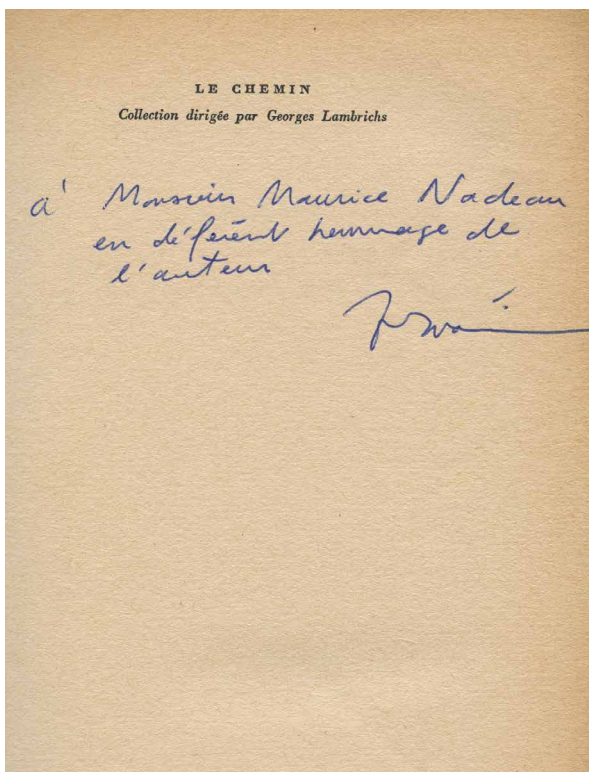 LE CHEMIN
Collection dirigée par Georges Lambrichs
à Monsieur Maurice Nadeau
en déférent hommage de
l'auteur